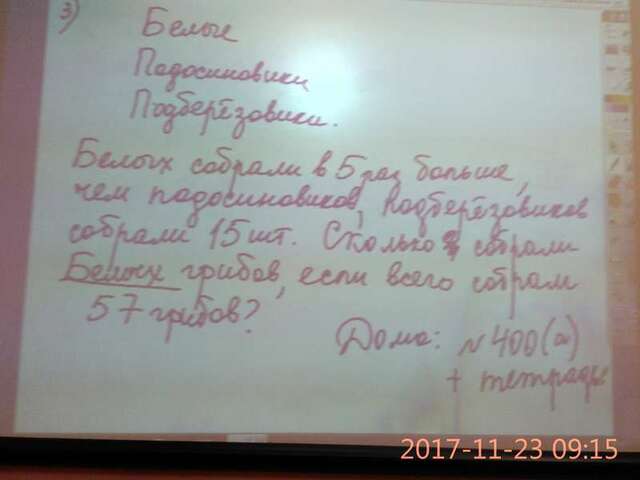 3)
Белые
Падосиновики
Подберёзовики.
Белых собрали в 5 раз больше,
чем падосиновиков, подберёзовиков
собрали 15 шт. Сколько собрали
Белых грибов, если всего собрали
57 грибов?
Дома: №400(а)
+ тетрадь
2017-11-23 09:15